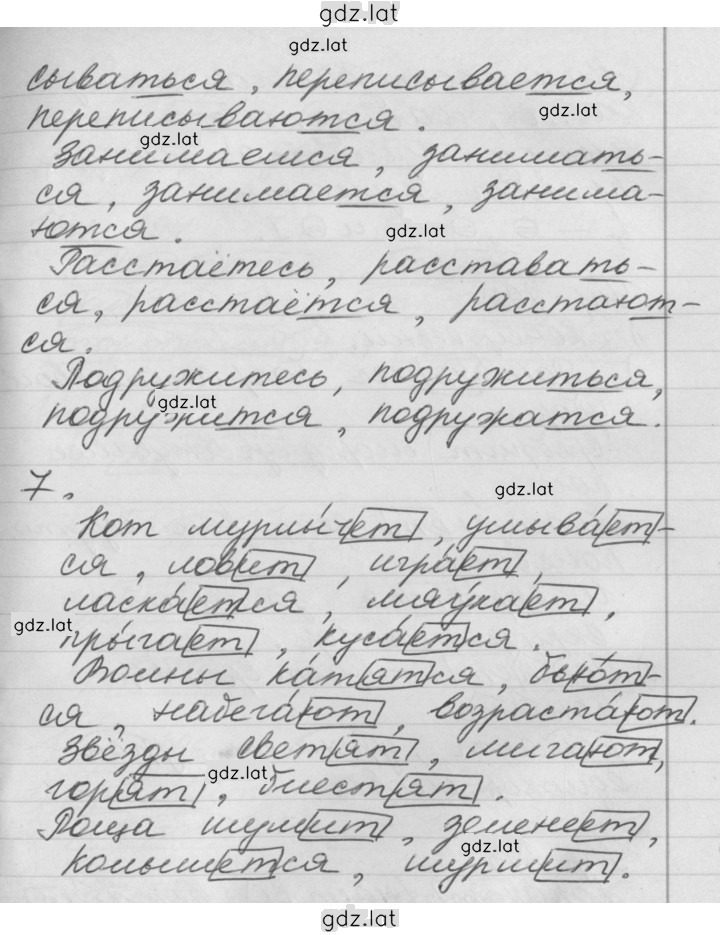 gdz.lat
gdz.lat
сываться, переписывается,
gdz.lat
переписываются.
gdz.lat
Занимаемся, занимать-
ся, занимается, занима-
ются.
gdz.lat
Расстаётесь, расставать-
ся, расстаётся, расстают-
ся.
Подружитесь, подружиться,
gdz.lat
подружится, подружатся.
7.
gdz.lat
Кот мурлы́чет, умыва́ет-
ся, ловит, игра́ет,
ласка́ется, мяу́кает,
gdz.lat
пры́гает, куса́ется.
Волны ка́тятся, бью́т-
ся, набега́ют, возраста́ют.
Звёзды светят, мига́ют,
gdz.lat
горят, блестят.
Роща шумит, зеленеет,
gdz.lat
колышется, шуршит.
gdz.lat